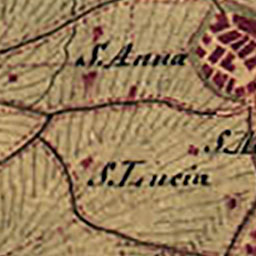 S. Anna
S. Lucia